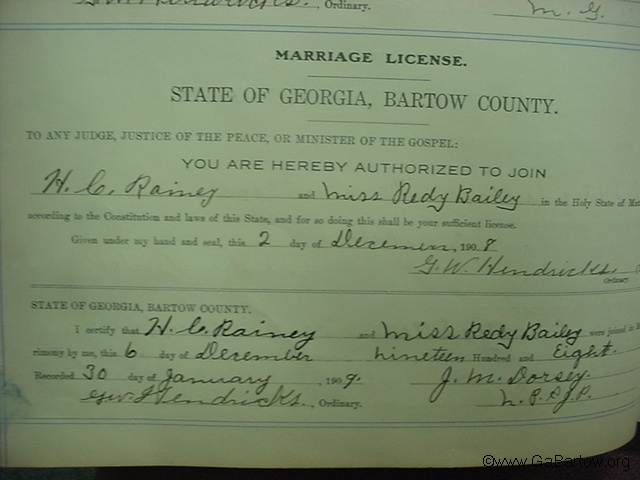 G.W. Hendricks. , Ordinary.
M. G.
MARRIAGE LICENSE.
STATE OF GEORGIA, BARTOW COUNTY.
TO ANY JUDGE, JUSTICE OF THE PEACE, OR MINISTER OF THE GOSPEL:
YOU ARE HEREBY AUTHORIZED TO JOIN
H. C. Rainey and Miss Redy Bailey in the Holy State of
according to the Constitution and laws of this State, and for so doing this shall be your sufficient license.
Given under my hand and seal, this 2 day of December, 1908
G. W. Hendricks.
Ordinary
STATE OF GEORGIA, BARTOW COUNTY.
I certify that H. C. Rainey and Miss Redy Bailey were joined in
rimony by me, this 6 day of December nineteen Hundred and Eight.
Recorded 30 day of January , 1909. J. M. Dorsey.
GW Hendricks. , Ordinary. N. P. & J. P.
©www.GaBartow.org